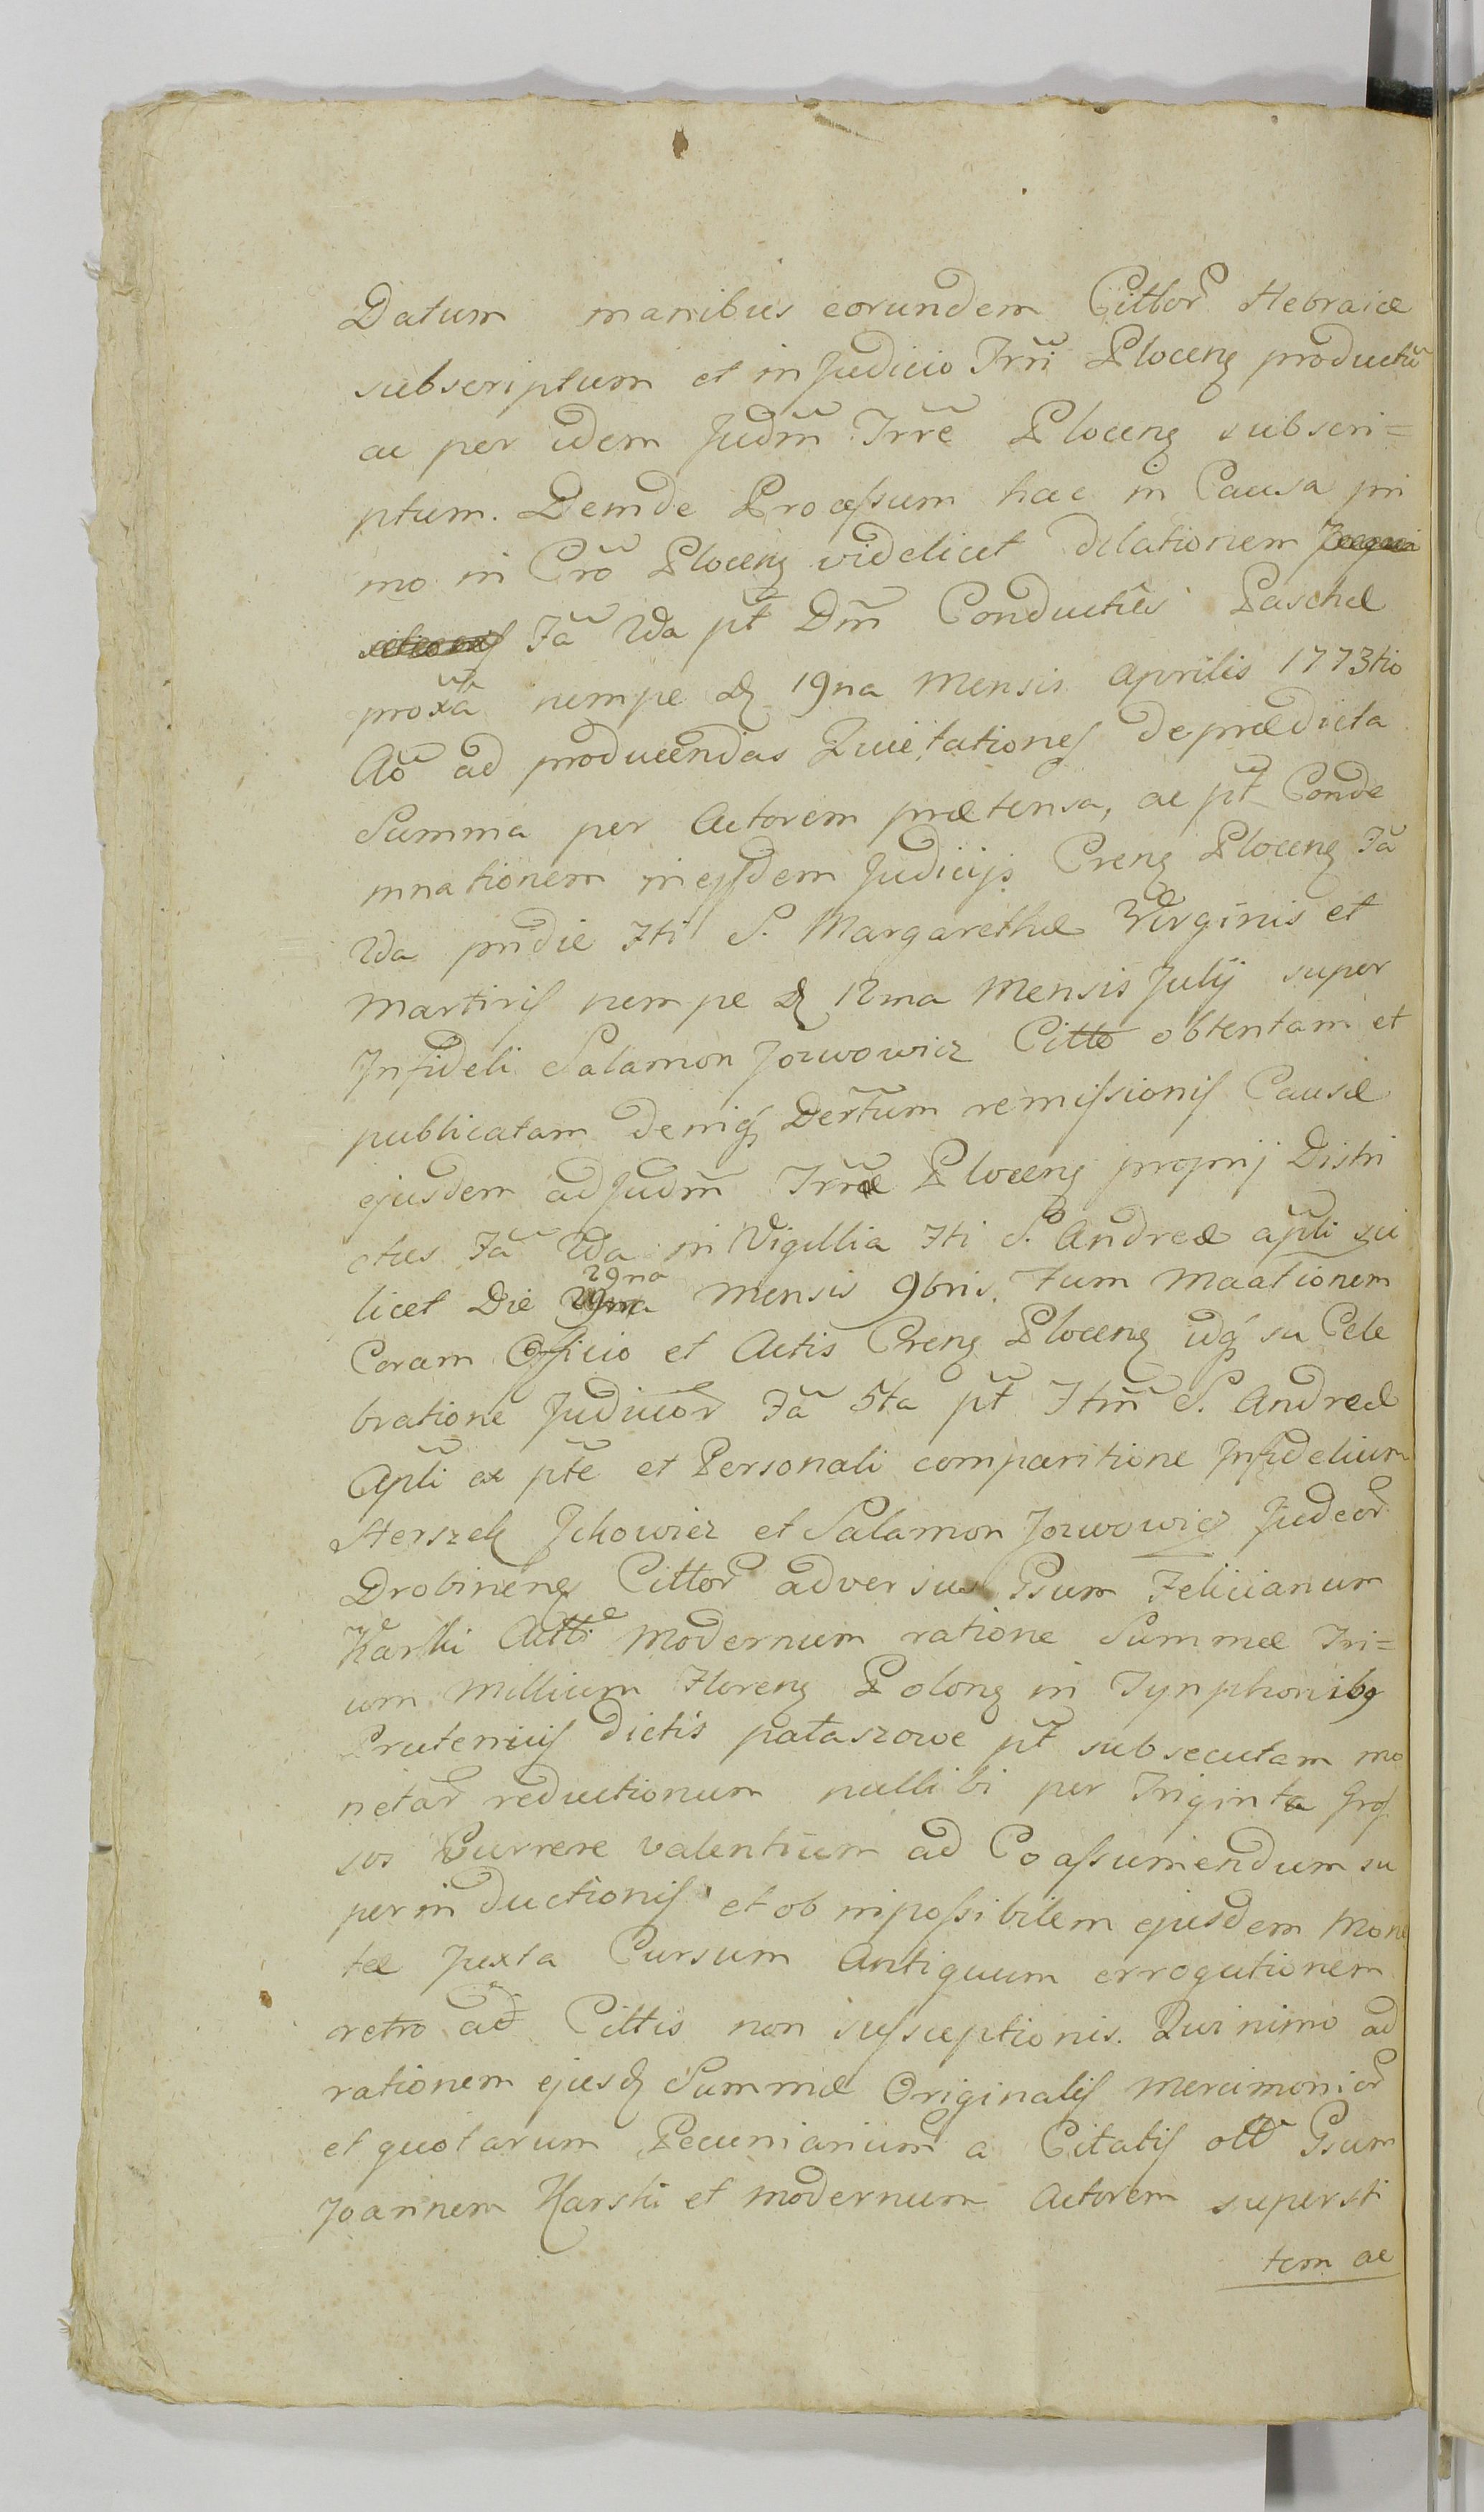 Datum manibus eorundem Cittor̃ Hebraice
subscriptum et in Judicio Trr̃i Plocenʒ productũ
ac per idem Judm̃ Trrẽ Plocenʒ subscri=
ptum. Deinde Processum hac in Causa pri
mo in Crõ Plocenʒ videlicet dilationem
Fã 2da pt̃ Dm̃ Conductûs Paschæ
proxã nempe dʒ 19na Mensis Aprilis 1773tio
Aõ ad producendas Quietationes de prædicta
Summa per Actorem prætensa, ac pt̃ Conde
mnationem in ejsdem Judicijs Crenʒ Plocenʒ Fã
2da pridie Fti S. Margarethæ Virginis et
Martiris nempe dʒ 12ma Mensis Julij super
Infideli Salamon Jozwowicz Citto obtentam et
publicatam deniqʒ Dertũm remissionis Causæ
ejusdem ad Judm̃ Trr̃æ Plocenʒ proprij Distri
ctus Fã 2da in Vigillia Fti S. Andreæ apli sci
licet Die 29na Mensis 9bris. Tum Maationem
Coram Officio et Actis Crenʒ Plocenʒ idqʒ su Cele
bratione Judicior̃ Fã 5ta pt̃ Ftm̃ S. Andreæ
Apli ex ptẽ et Personali comparitione Infidelium
Herszek Jckowicz et Salamon Jozwowicz Judeor̃
Drobinenʒ Cittor̃ adversus Gsum Felicianum
Karski Actt̃ Modernum ratione Summæ Tri=
um Millium Florenʒ Polonʒ in Tynphonibꝯ
Prutenicis dictis pałaszowe pt̃ subsecutam mo
netar̃ reductionum nullibi per Triginta Gros
sos Currere valentium ad Coassumendum su
per inductionis et ob inpossibilem ejusdem Mone
tæ Juxta Cursum Antiquum errogationem
retro ad Cittis non susceptionis. Quinimo ad
rationem ejusdʒ Summæ Originalis Mercimonior̃
et quotarum Pecuniarium a Citatis olĩ Gsum
Joannem Karski et Modernum Actorem supersti
tem ac